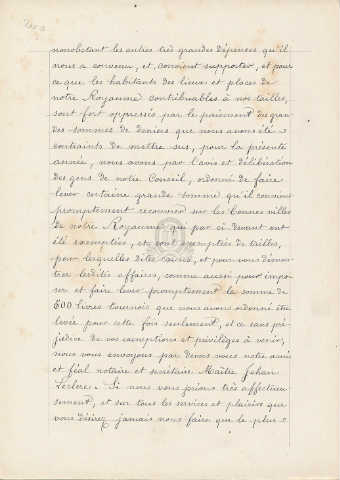 nonobstant les autres très grandes dépenses qu'il
nous a convenu, et, convient supporter, et pour
ce que les habitants des lieux et places de
notre Royaume contribuables à nos tailles,
sont fort oppressés par le paiement des gran-
des sommes de deniers que nous avons été
contraints de mettre sus, pour la présente
année, nous avons par l'avis et délibération
des gens de notre Conseil, ordonné de faire
lever certaine grande somme qu'il convient
promptement recouvrer sur les bonnes villes
de notre Royaume qui par ci devant ont
été exemptées, et sont exemptées de tailles,
pour lesquelles dites causes, et pour vous démon-
trer lesdites affaires, comme aussi pour impo-
ser et faire lever promptement la somme de
600 livres tournois que nous avons ordonné être
levée pour cette fois seulement, et ce sans pré-
judice de vos exemptions et privilèges à venir,
nous vous envoyons par devers vous notre amé
et féal notaire et secrétaire Maître Jehan
Leclerc. Si nous vous prions très affectueu-
sement, et sur tous les services et plaisirs que
vous désirez jamais nous faire que le plus